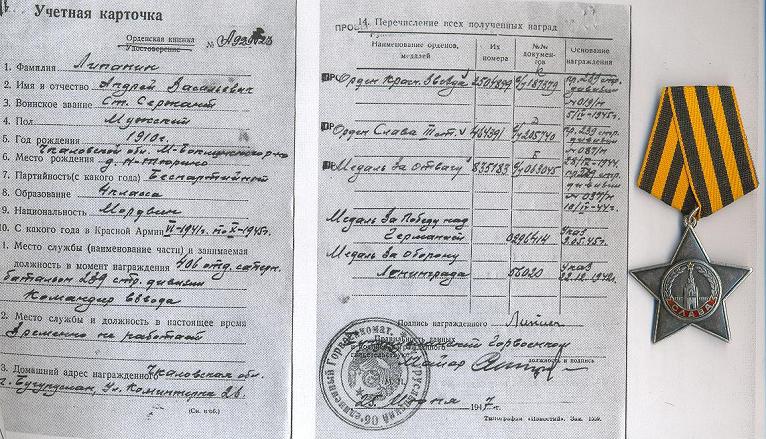 Учетная карточка
Орденская книжка
Удостоверение № А
1. Фамилия Липанин
2. Имя и отчество Андрей Васильевич
3. Воинское звание Ст. Сержант
4. Пол Мужской
5. Год рождения 1910г.
Чкаловской обл.
6. Место рождения
7. Партийность(с какого года) Беспартийный
8. Образование 4 класса
9. Национальность Мордвин
10. С какого года в Красной Армии VI-1941г. по X-1945г.
1. Место службы (наименование части) и занимаемая
должность в момент награждения 406 отд. саперн.
батальон 289 стр. дивизии
Командир взвода
2. Место службы и должность в настоящее время
Временно не работает
3. Домашний адрес награжденного Чкаловская обл.
г. Бугуруслан, Ул. Коминтерна 28.
(См. н об.)
14. Перечисление всех полученных наград
Наименование орденов, медалей
Их номера
№№ документов
Основание награждения
Орден Красн. Звезда 187379 пр. 289 стр. дивизии
№ 019/н
5/IV-1945г.
Орден Слава III ст. 464391 285740 пр. 289 стр. дивизии
№ 087/н
Медаль За отвагу 835183 063045 дивизии
№ 037/н
10/IV-44г.
Медаль За Победу над
Германией 0296414 Указ
9.05.45г.
Медаль За оборону
Ленинграда 56020 Указ
22.12.1942г.
Подпись награжденного
Правильность данных
Горвоенком
Майор
должность и подпись
1947 г.
Типография «Новости». Зак. 1989.
СЛАВА